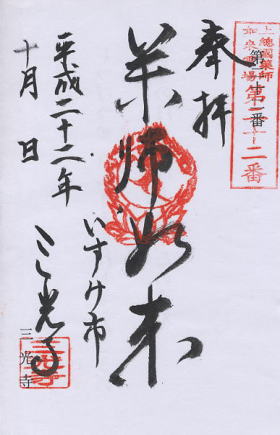 上總國藥師
如來霊場
第十二番
奉拝
薬師如来
いすみ市
三光寺
平成二十二年
十月 日
三光寺